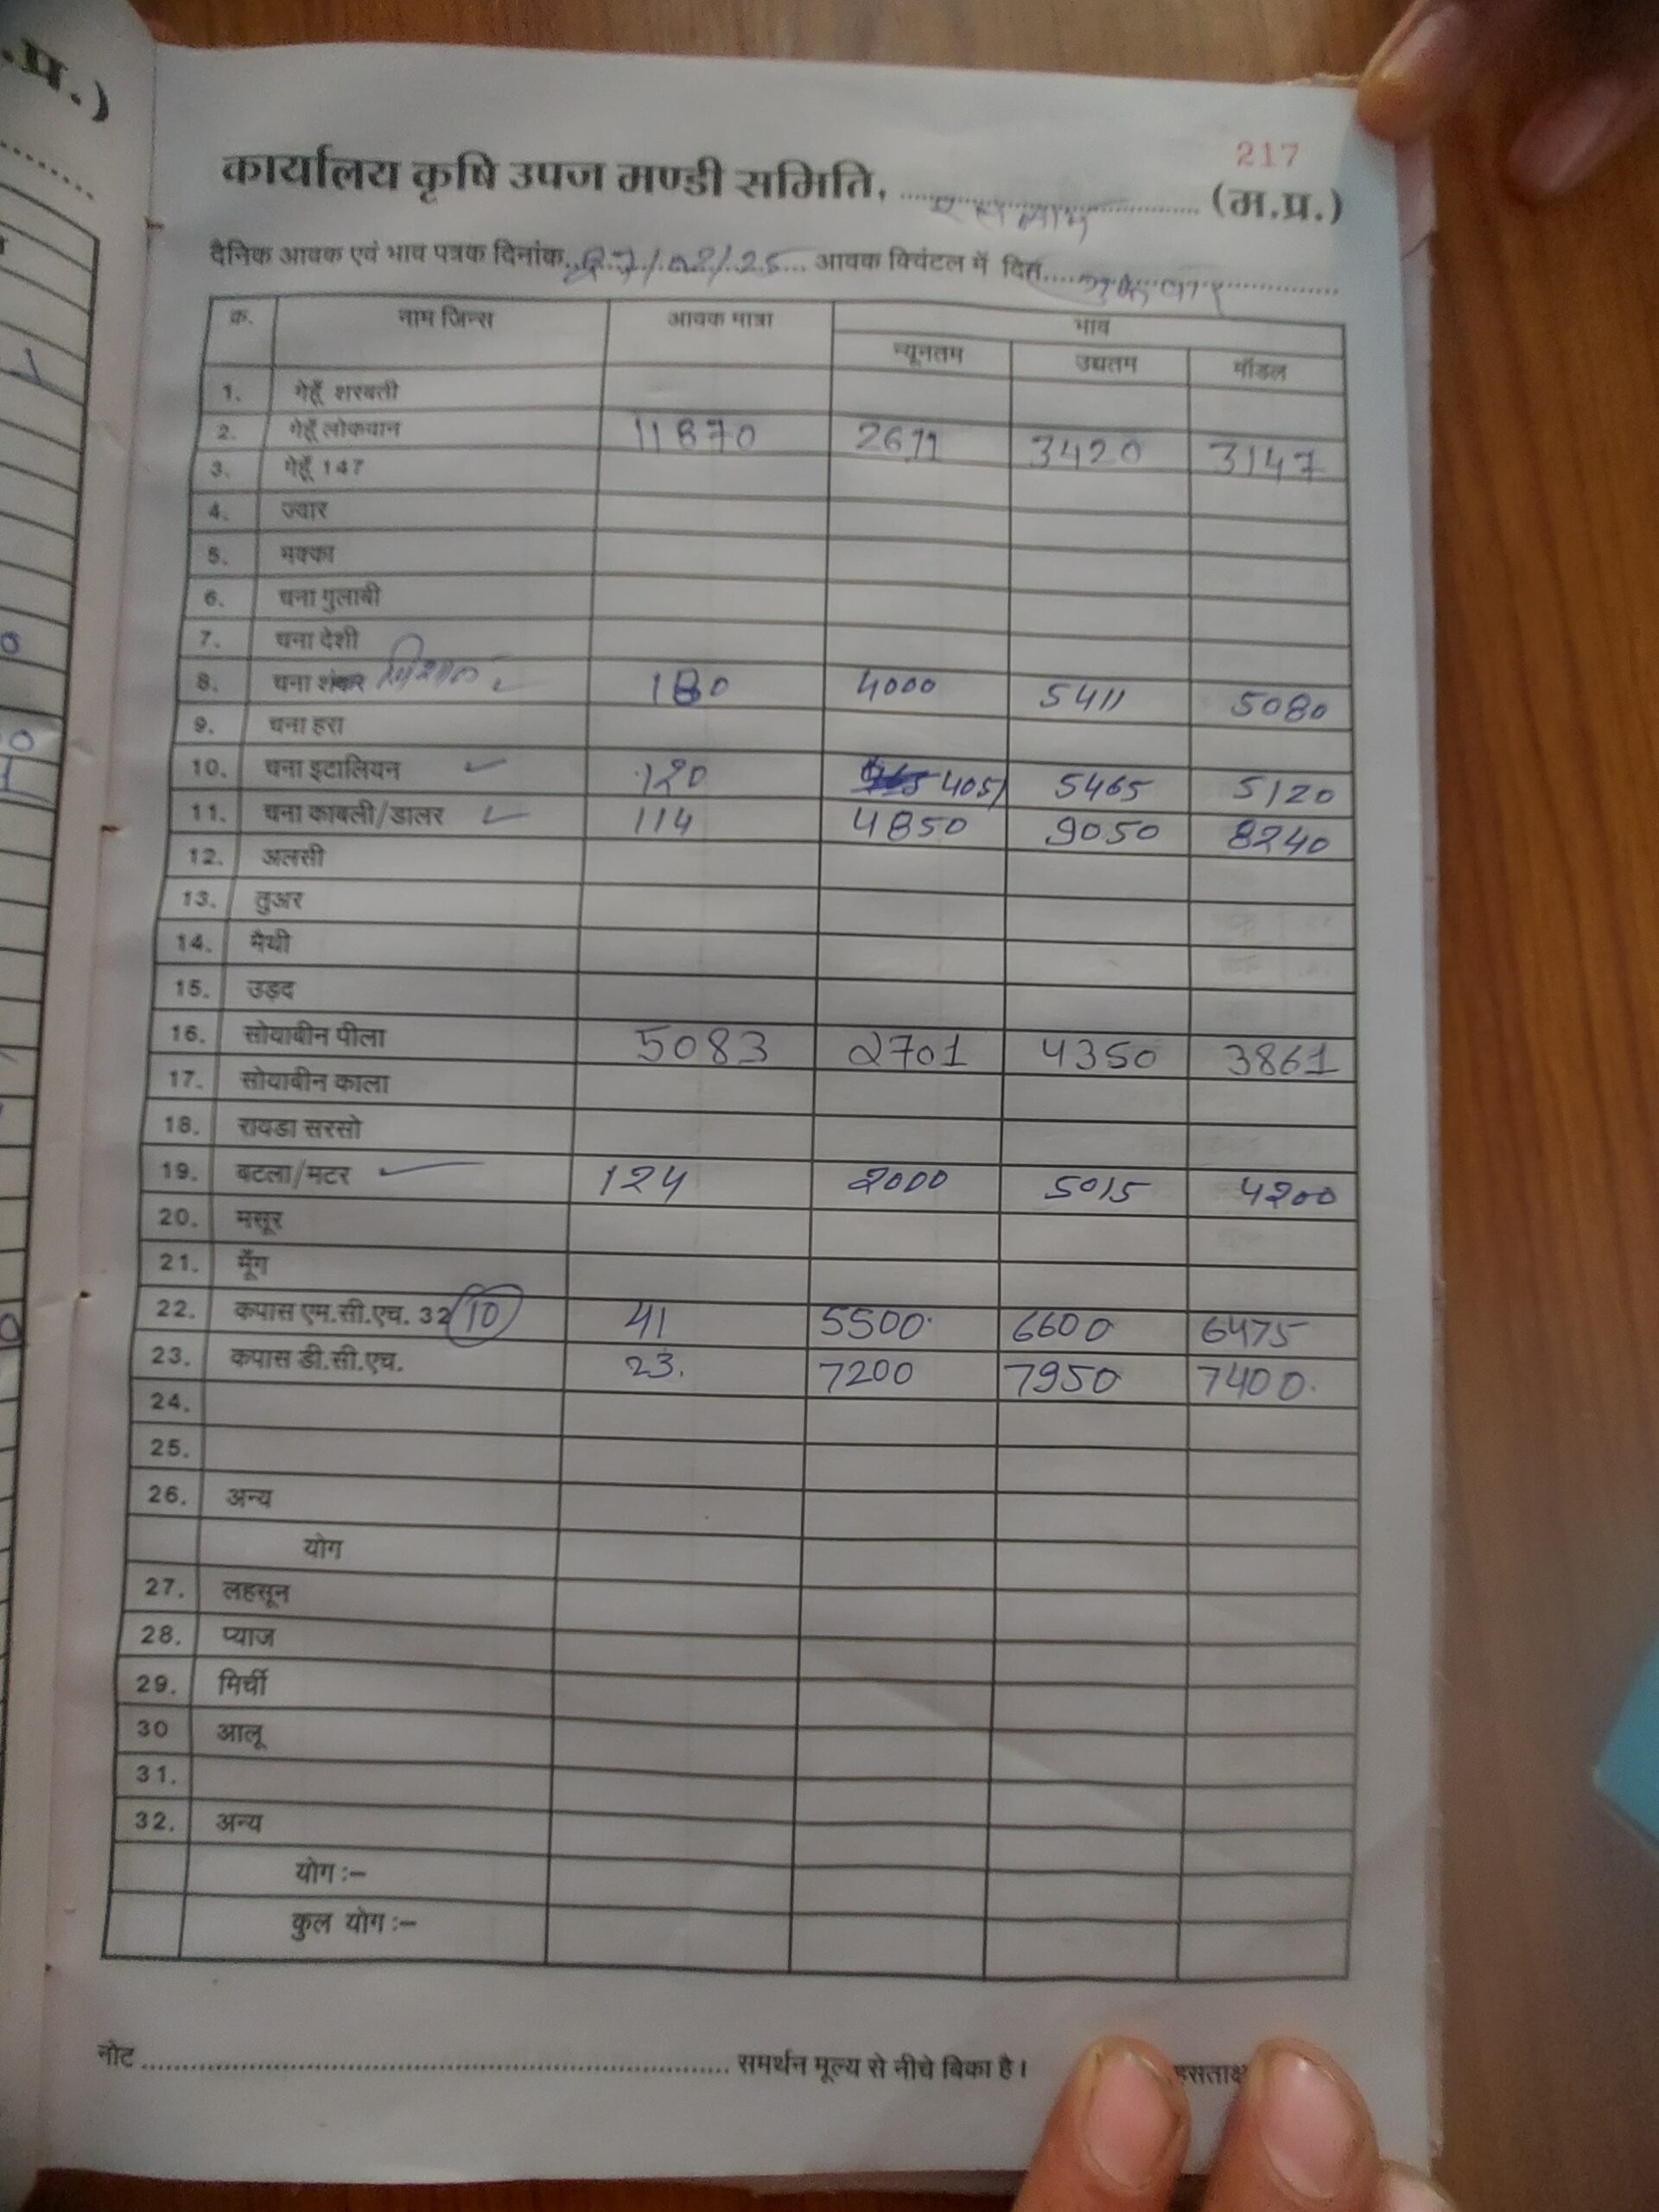 .प्र.)
217
कार्यालय कृषि उपज मण्डी समिति, रतलाम (म.प्र.)
दैनिक आवक एवं भाव पत्रक दिनांक 27/02/25 आवक क्विंटल में दिन
क्र. नाम जिन्स आवक मात्रा भाव
न्यूनतम उच्चतम मॉडल
1. गेहूँ शरबती
2. गेहूँ लोकवान 11870 2611 3420 3147
3. गेहूँ 147
4. ज्वार
5. मक्का
6. चना गुलाबी
7. चना देशी
8. चना शंकर विशाल 180 4000 5411 5080
9. चना हरा
10. चना इटालियन 120 4051 5465 5120
11. चना काबली/डालर 114 4850 9050 8240
12. अलसी
13. तुअर
14. मैथी
15. उड़द
16. सोयाबीन पीला 5083 2701 4350 3861
17. सोयाबीन काला
18. रायडा सरसो
19. बटला/मटर 124 2000 5015 4200
20. मसूर
21. मूँग
22. कपास एम.सी.एच. 32 10 41 5500 6600 6475
23. कपास डी.सी.एच. 23. 7200 7950 7400
24.
25.
26. अन्य
योग
27. लहसून
28. प्याज
29. मिर्ची
30 आलू
31.
32. अन्य
योग :–
कुल योग :–
नोट समर्थन मूल्य से नीचे बिका है।